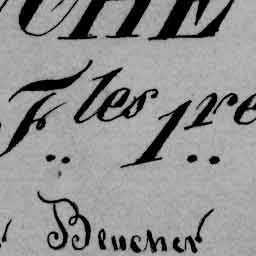 CHE
F.les 1.re
Beucher